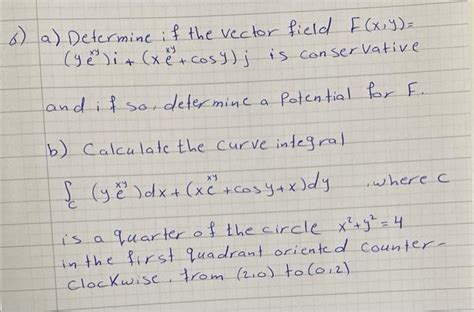 6) a) Determine if the vector field F(x,y)=
(ye^xy)i + (xe^xy+cosy)j is conservative
and if so, determine a Potential for F.
b) Calculate the curve integral
∫_C (ye^xy)dx+(xe^xy+cosy+x)dy , where C
is a quarter of the circle x²+y²=4
in the first quadrant oriented counter-
clockwise, from (2,0) to (0,2)